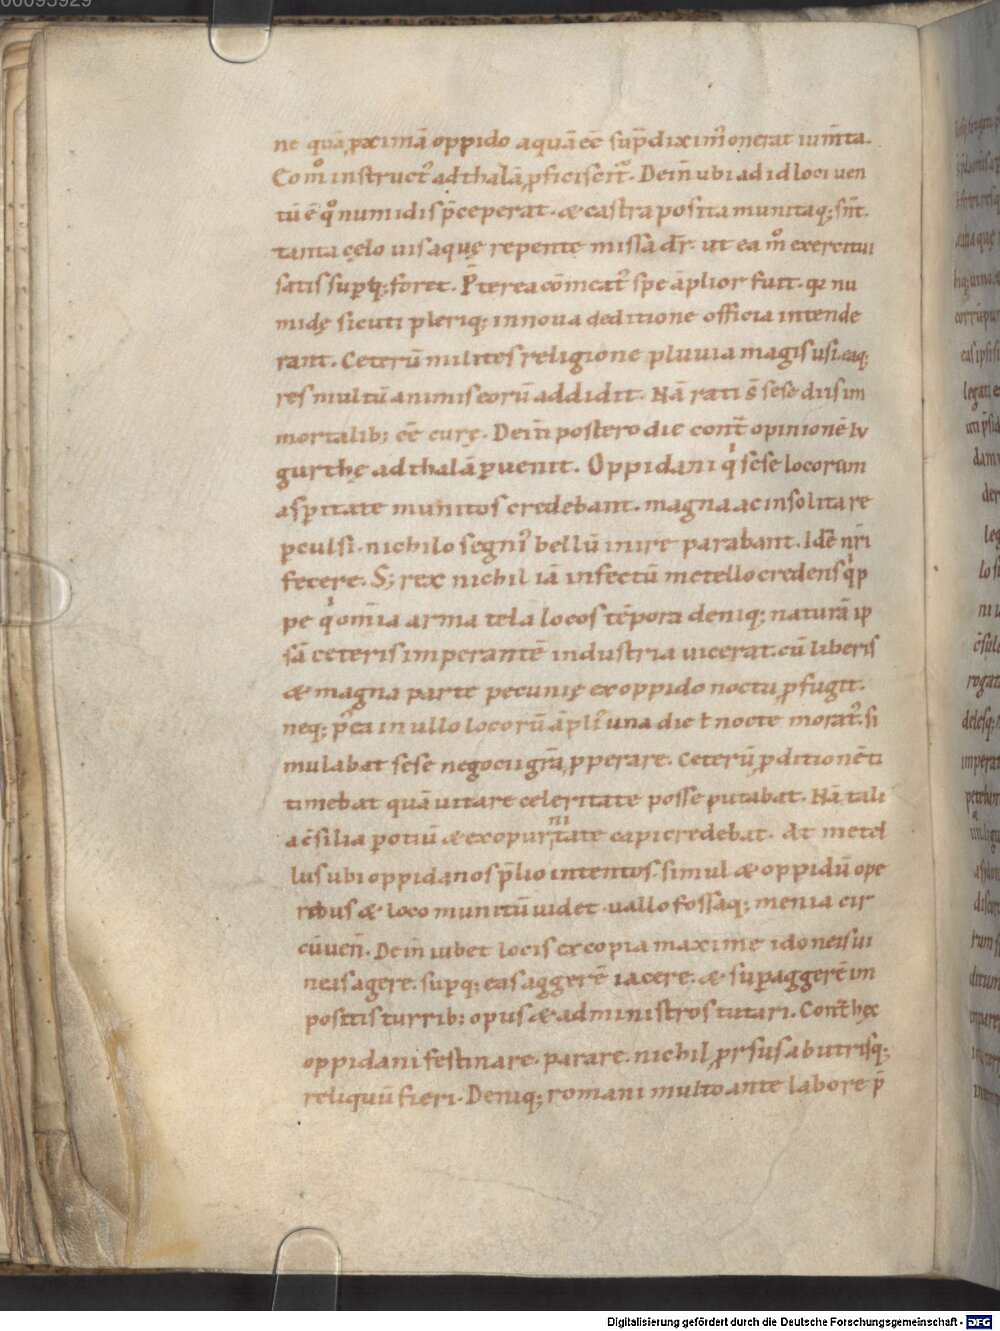 00095929
ne quā ꝓximā oppido aquā eē sup̄dixim᷒ onerat ium̄ta.
Com᷒ instruct᷒ ad thalā ꝓficiscit᷒. Dein̄ ubi ad id loci uen
tū ē q̊ numidis p̄ceperat. & castra posita munitaq; sn̄t.
tanta cęlo uis aquę repente missa dr̄. ut ea m̊ exercitui
satis supq; foret. P̄terea cōmeat᷒ spe āplior fuit. qꝛ nu
midę sicuti pleriq; in noua deditione officia intende
rant. Ceterū milites religione pluuia magis usi. eaq;
res multū animis eorū addidit. Nā rati s̄ sese diis im
mortalib; eē curę. Dein̄ postero die cont̄ opinionē iu
gurthę ad thalā ꝑuenit. Oppidani q̇ sese locorum
asꝑitate munitos credebant. magna ac insolita re
ꝑculsi. nichilo segni᷒ bellū inire parabant. Idē nr̄i
fecere. S; rex nichil iā infectū metello credens q̇p
pe q̇ om̄ia arma tela locos tēpora deniq; naturā ip
sā ceteris imperantē industria uicerat. cū liberis
& magna parte pecunię ex oppido noctu ꝓfugit.
neq; p̄ea in ullo locorū āpli᷒ una die ł nocte morat᷒. si
mulabat sese negocii grā ꝓperare. Ceterū ꝓditionē ti
timebat quā uitare celeritate posse putabat. Nā tali
a c̄silia potiū & ex opurtnitate capi credebat. At metel
lus ubi oppidanos p̄lio intentos. simul & oppidū ope
ribus & loco munitū uidet. uallo fossaq; menia cir
cūuen̄. Dein̄ iubet locis ex copia maxime idoneis ui
neis agere. suꝑq; eas aggerē iacere. & suꝑ aggerē im
positis turrib; opus & administros tutari. Cont̄ hęc
oppidani festinare. parare. nichil ꝓrsus ab utrisq;
reliquū fieri. Deniq; romani multo ante labore p̄
Digitalisierung gefördert durch die Deutsche Forschungsgemeinschaft - DFG